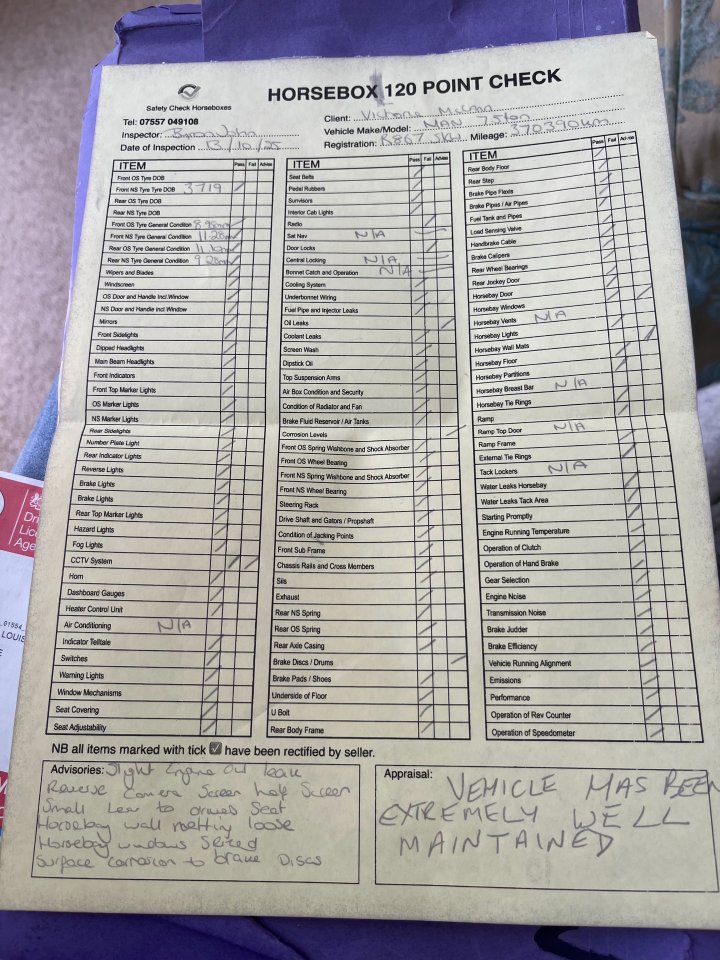 HORSEBOX 120 POINT CHECK
Safety Check Horseboxes
Tel: 07557 049108
Inspector: Byron John
Date of Inspection 13/10/25
Client: Victoria
Vehicle Make/Model: MAN 7.5ton
Registration: Mileage: 370390km
ITEM Pass Fail Advise
Front OS Tyre DOB
Front NS Tyre Tyre DOB 3719
Rear OS Tyre DOB
Rear NS Tyre DOB
Front OS Tyre General Condition 8.98mm
Front NS Tyre General Condition 11.28mm
Rear OS Tyre General Condition
Rear NS Tyre General Condition 9.28mm
Wipers and Blades
Windscreen
OS Door and Handle Incl.Window
NS Door and Handle incl.Window
Mirrors
Front Sidelights
Dipped Headlights
Main Beam Headlights
Front Indicators
Front Top Marker Lights
OS Marker Lights
NS Marker Lights
Rear Sidelights
Number Plate Light
Rear Indicator Lights
Reverse Lights
Brake Lights
Brake Lights
Rear Top Marker Lights
Hazard Lights
Fog Lights
CCTV System
Horn
Dashboard Gauges
Heater Control Unit
Air Conditioning N/A
Indicator Telltale
Switches
Warning Lights
Window Mechanisms
Seat Covering
Seat Adjustability
ITEM Pass Fail Advise
Seat Belts
Pedal Rubbers
Sunvisors
Interior Cab Lights
Radio
Sat Nav N/A
Door Locks
Central Locking N/A
Bonnet Catch and Operation N/A
Cooling System
Underbonnet Wiring
Fuel Pipe and Injector Leaks
Oil Leaks
Coolant Leaks
Screen Wash
Dipstick Oil
Top Suspension Arms
Air Box Condition and Security
Condition of Radiator and Fan
Brake Fluid Reservoir / Air Tanks
Corrosion Levels
Front OS Spring Wishbone and Shock Absorber
Front OS Wheel Bearing
Front NS Spring Wishbone and Shock Absorber
Front NS Wheel Bearing
Steering Rack
Drive Shaft and Gators / Propshaft
Condition of Jacking Points
Front Sub Frame
Chassis Rails and Cross Members
Sils
Exhaust
Rear NS Spring
Rear OS Spring
Rear Axle Casing
Brake Discs / Drums
Brake Pads / Shoes
Underside of Floor
U Bolt
Rear Body Frame
ITEM Pass Fail Advise
Rear Body Floor
Rear Step
Brake Pipe Flexis
Brake Pipes / Air Pipes
Fuel Tank and Pipes
Load Sensing Valve
Handbrake Cable
Brake Calipers
Rear Wheel Bearings
Rear Jockey Door
Horsebay Door
Horsebay Windows
Horsebay Vents N/A
Horsebay Lights
Horsebay Wall Mats
Horsebay Floor
Horsebay Partitions
Horsebay Breast Bar N/A
Horsebay Tie Rings
Ramp
Ramp Top Door N/A
Ramp Frame
External Tie Rings
Tack Lockers N/A
Water Leaks Horsebay
Water Leaks Tack Area
Starting Promptly
Engine Running Temperature
Operation of Clutch
Operation of Hand Brake
Gear Selection
Engine Noise
Transmission Noise
Brake Judder
Brake Efficiency
Vehicle Running Alignment
Emissions
Performance
Operation of Rev Counter
Operation of Speedometer
NB all items marked with tick ☑ have been rectified by seller.
Advisories: Slight Engine Oil leak
Reverse Camera Screen half Screen
Small to drivers Seat
Horsebay wall matting loose
Horsebay windows Seized
Surface corrosion to brake Discs
Appraisal: VEHICLE HAS BEEN
EXTREMELY WELL
MAINTAINED
Dri
Lic
Age
_01554_
LOUIS